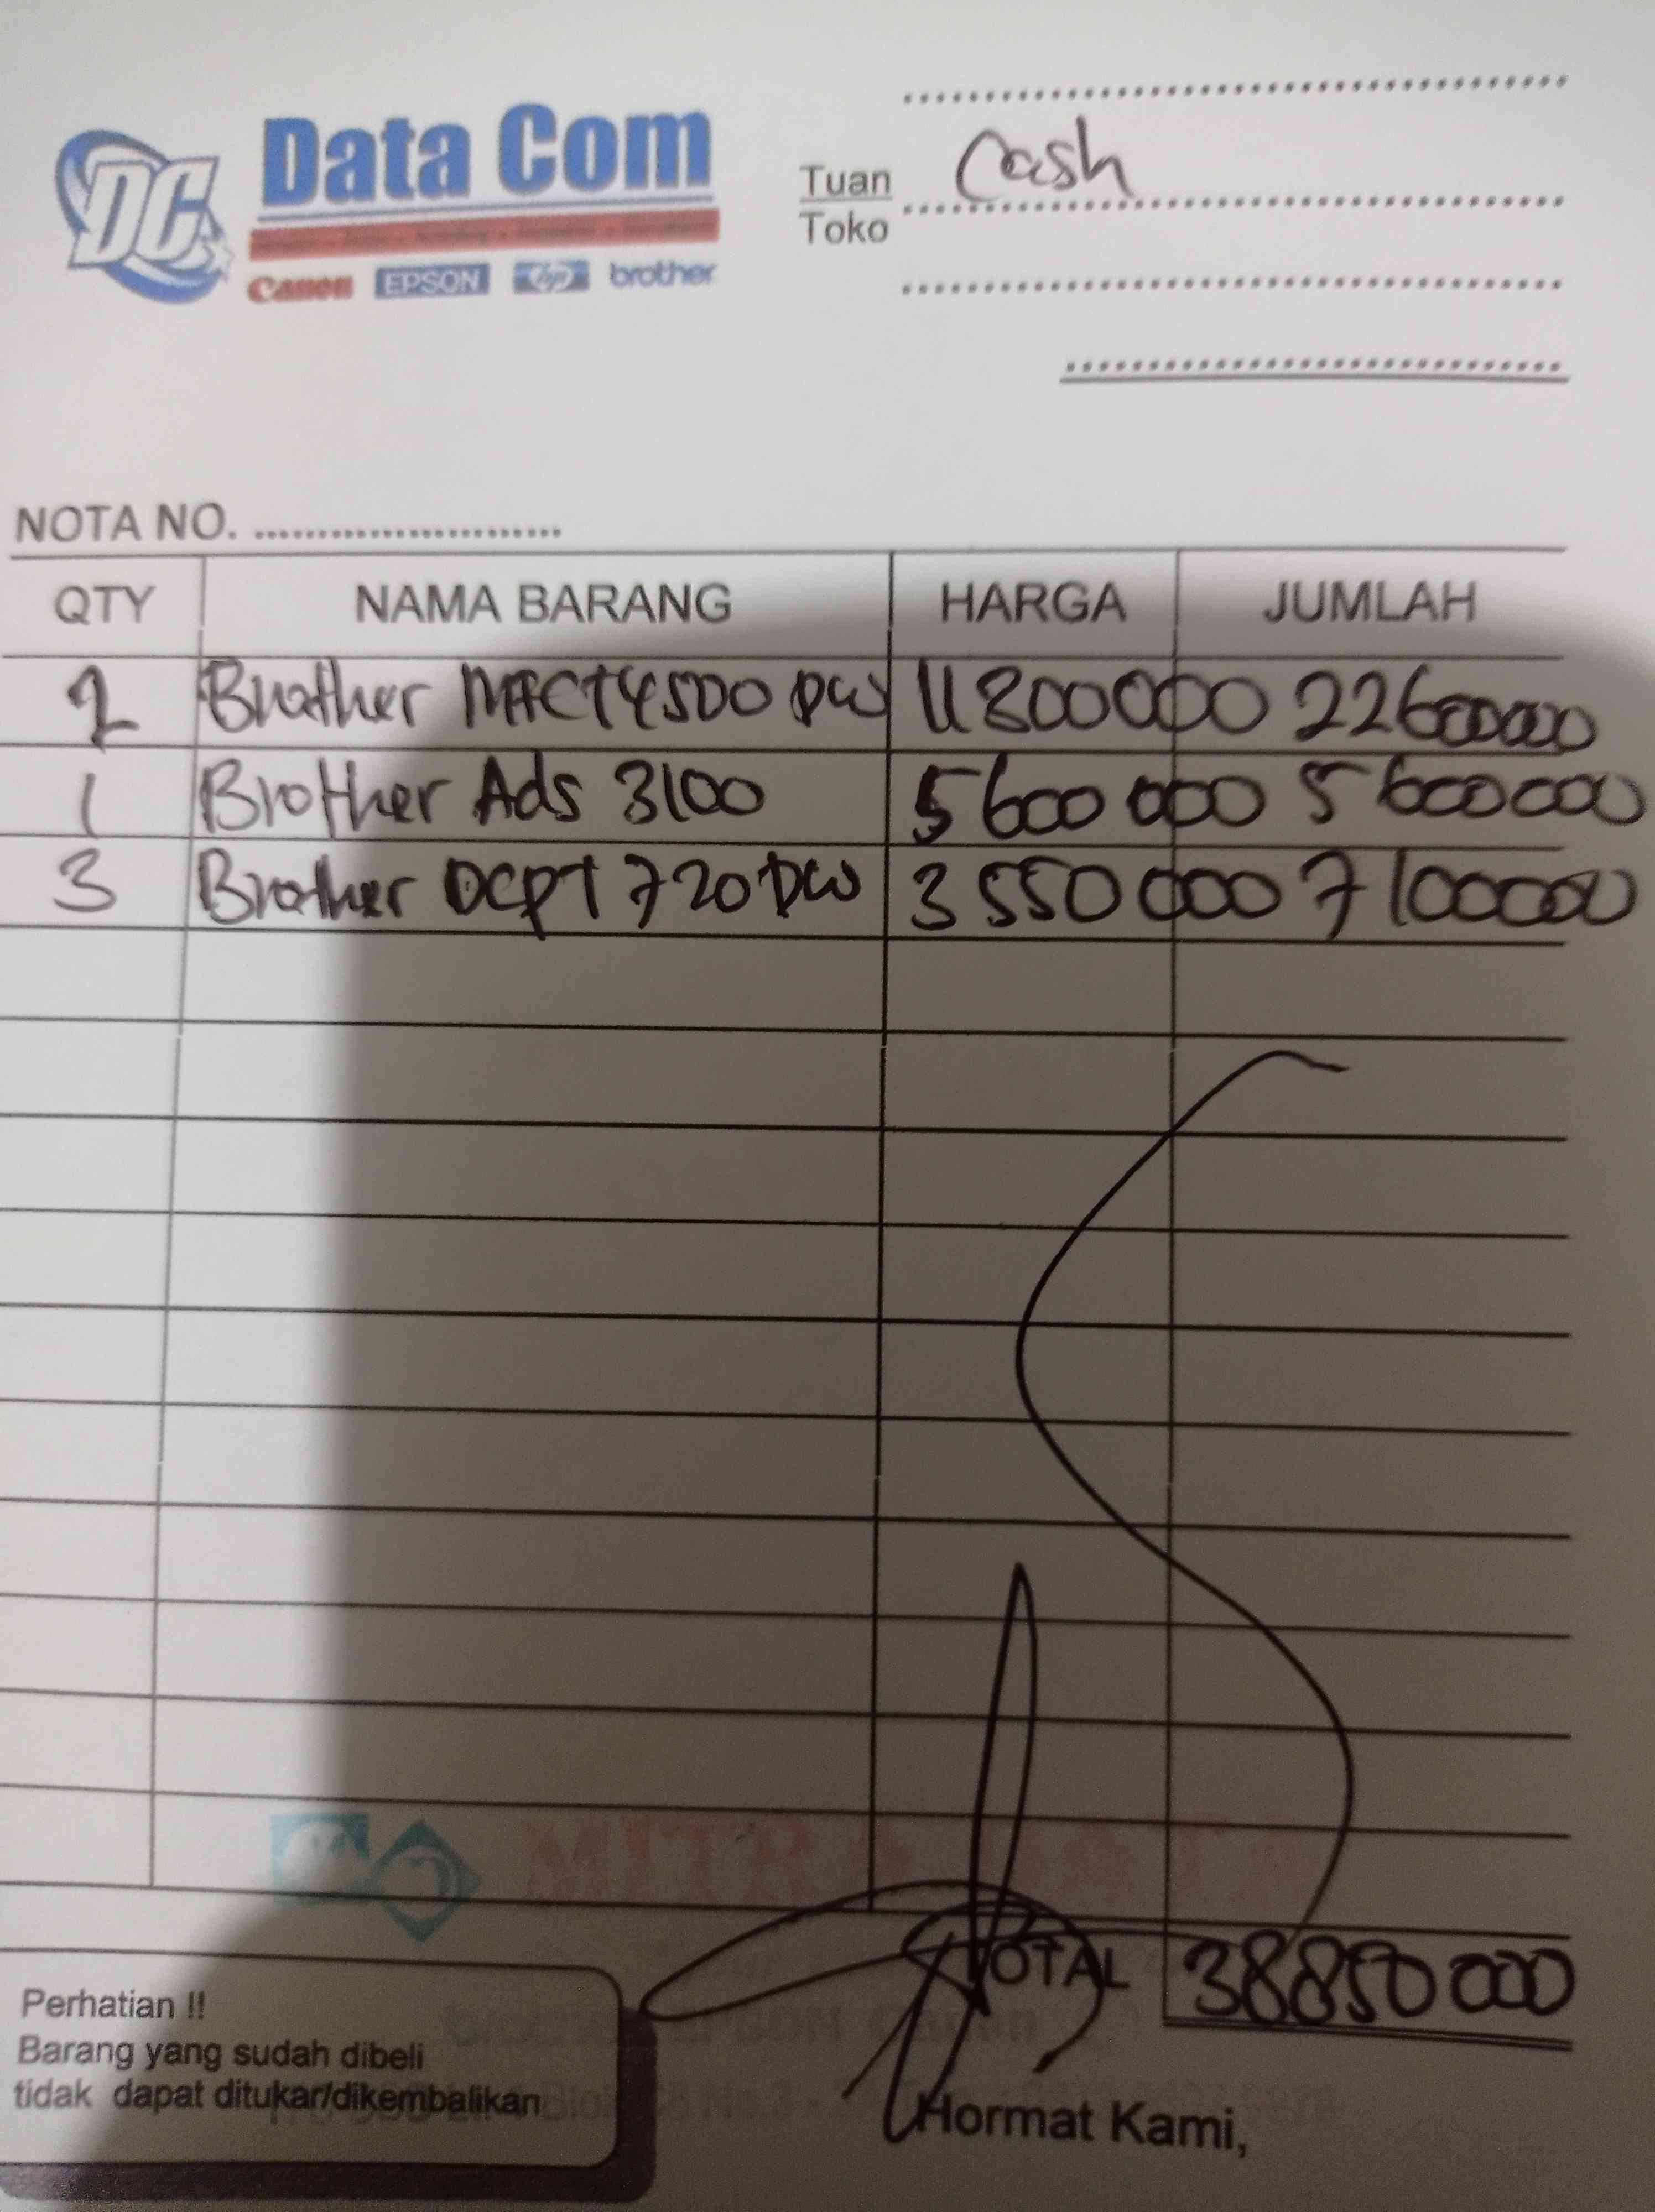 DC
Data Com
Canon EPSON hp brother
Tuan Cash
Toko
NOTA NO.
QTY NAMA BARANG HARGA JUMLAH
2 Brother MFCT4500 DW 11300000 22600000
1 Brother Ads 3100 5600 000 5600000
3 Brother DCPT 720 DW 3 550 000 7100000
MITRA DATA
TOTAL 38850 000
Perhatian !!
Barang yang sudah dibeli
tidak dapat ditukar/dikembalikan
Hormat Kami,